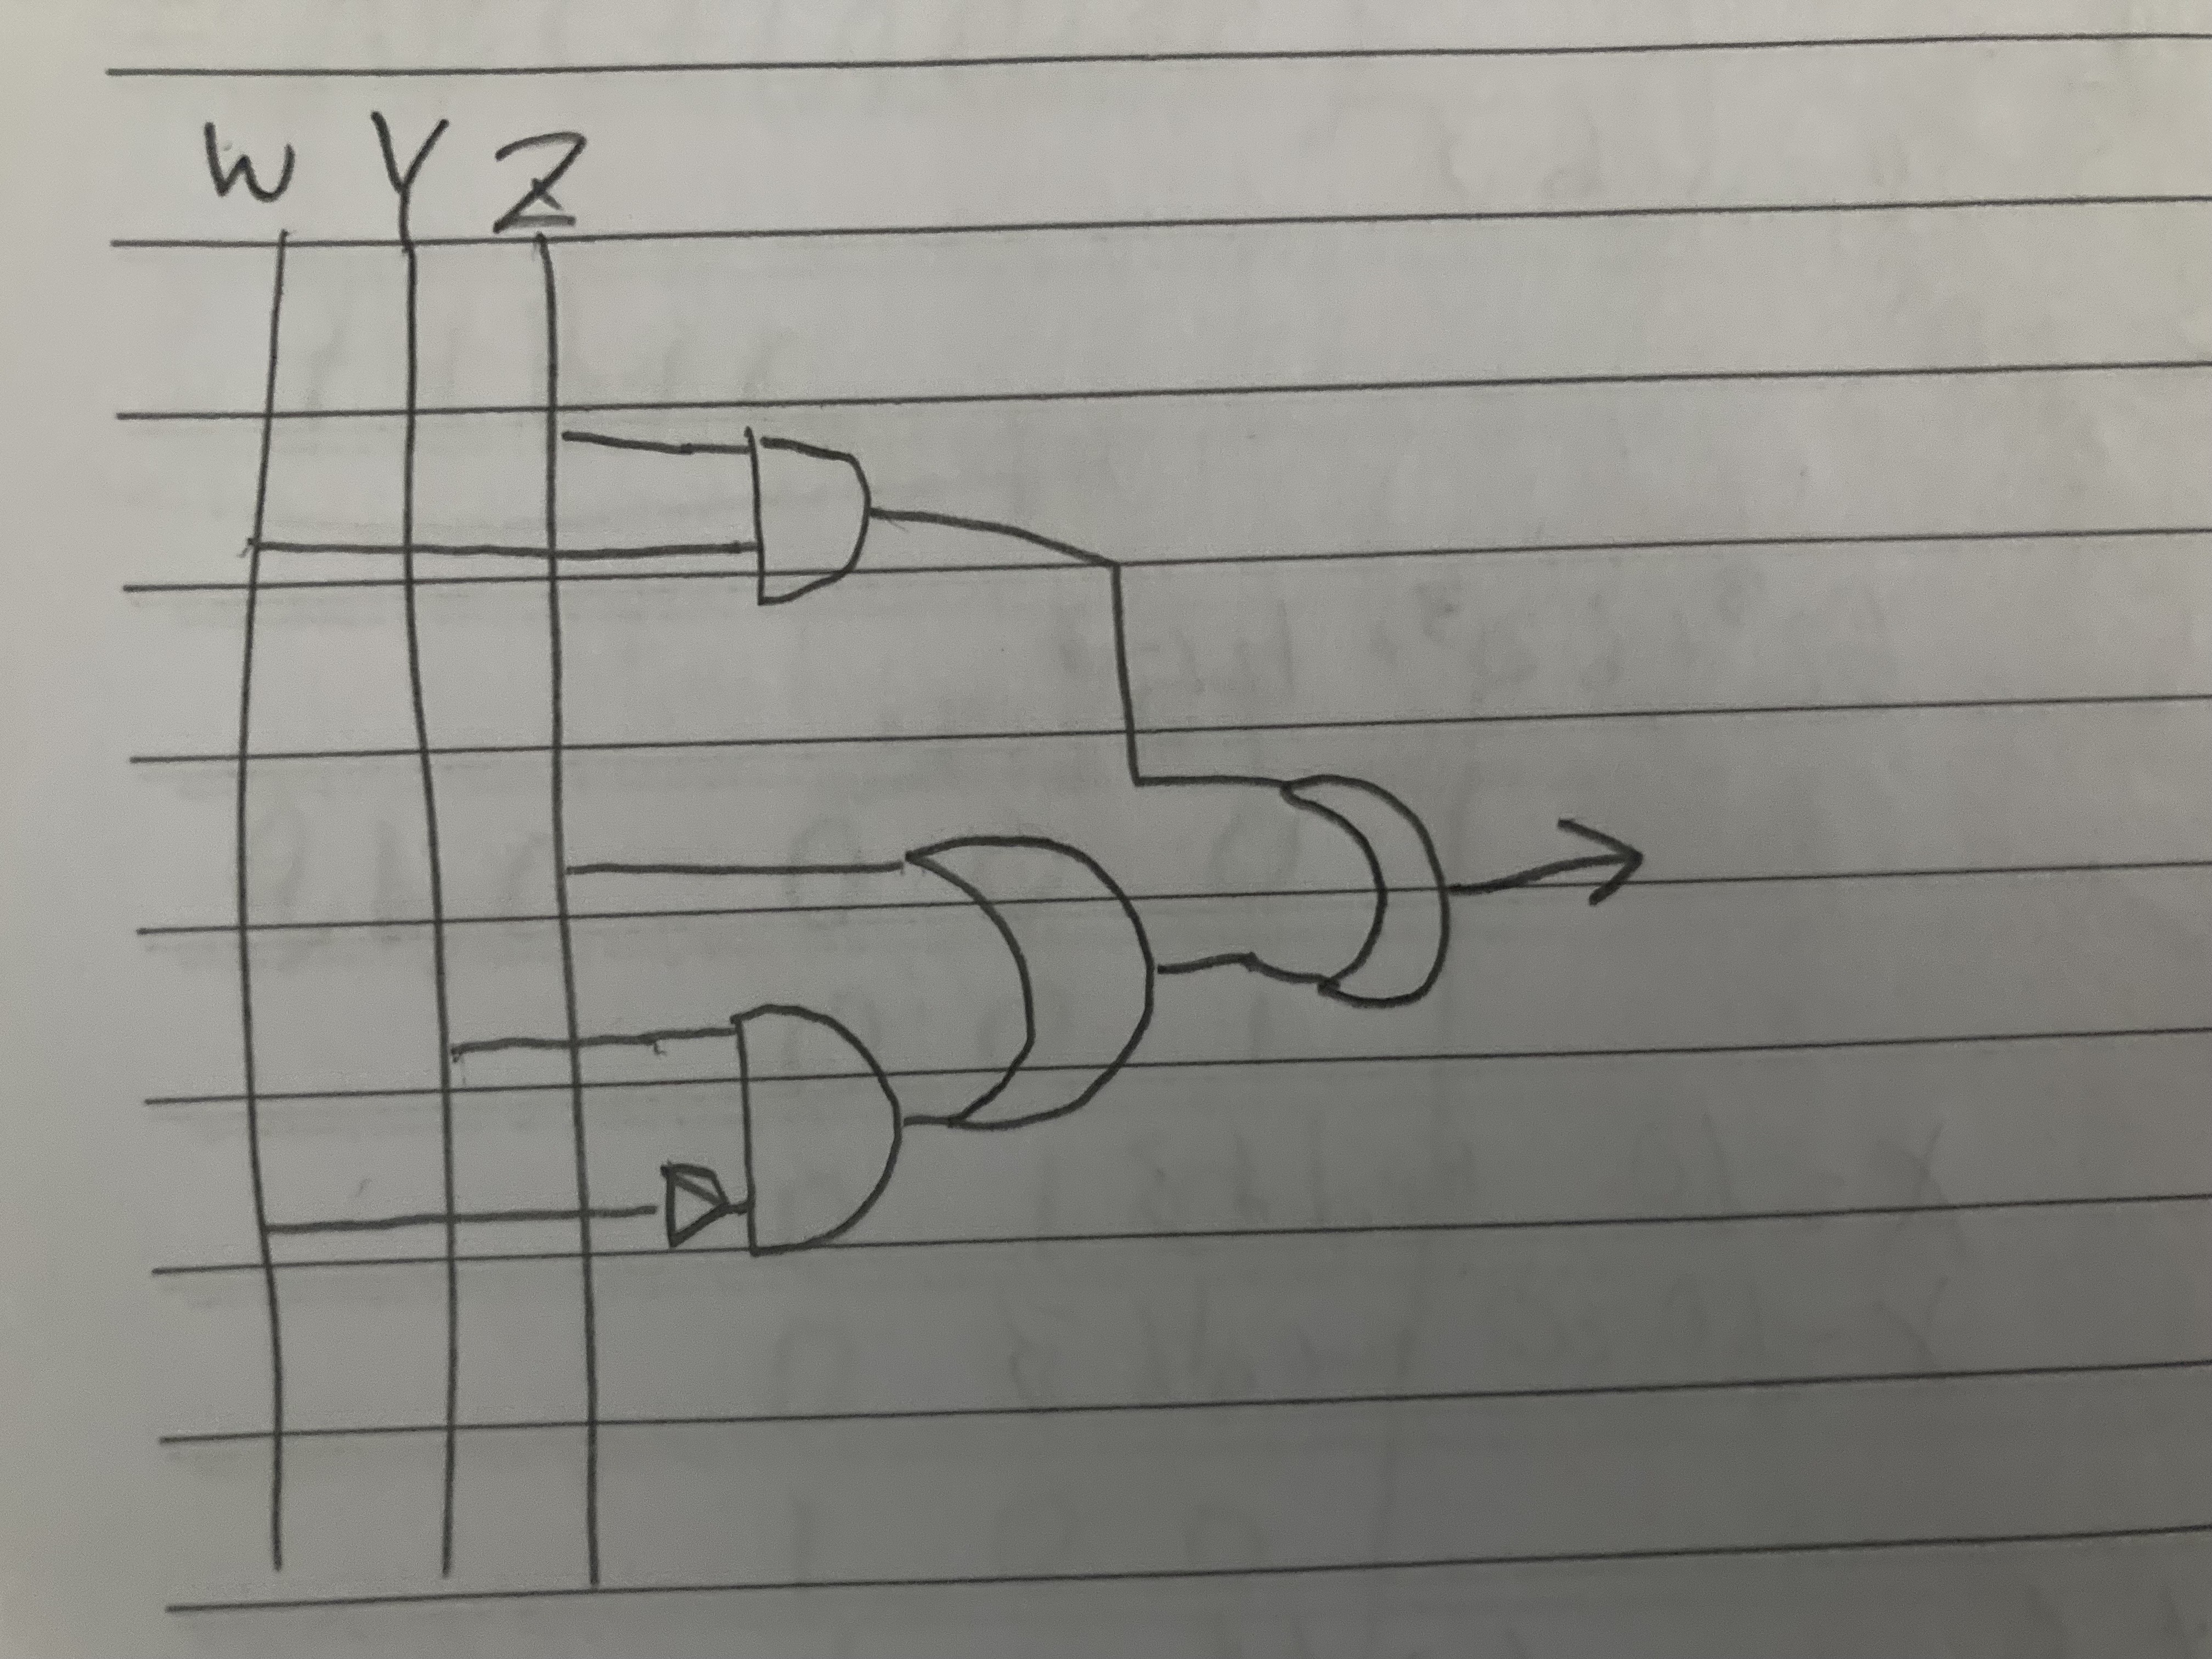 W Y Z